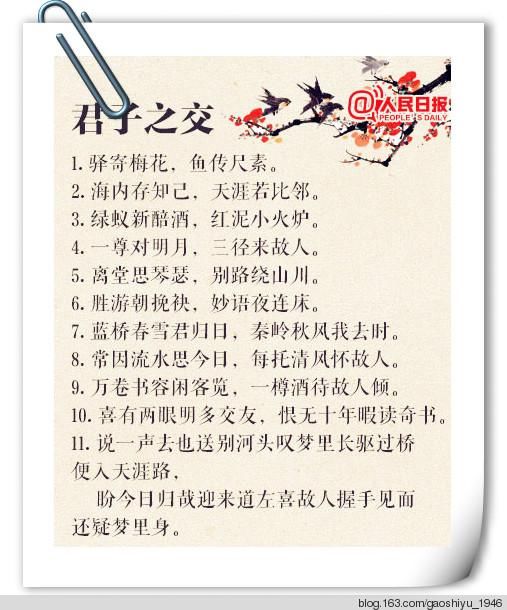 君子之交
@人民日报
PEOPLE'S DAILY
1. 驿寄梅花，鱼传尺素。
2. 海内存知己，天涯若比邻。
3. 绿蚁新醅酒，红泥小火炉。
4. 一尊对明月，三径来故人。
5. 离堂思琴瑟，别路绕山川。
6. 胜游朝挽袂，妙语夜连床。
7. 蓝桥春雪君归日，秦岭秋风我去时。
8. 常因流水思今日，每托清风怀故人。
9. 万卷书容闲客览，一樽酒待故人倾。
10. 喜有两眼明多交友，恨无十年暇读奇书。
11. 说一声去也送别河头叹梦里长驱过桥
便入天涯路，
盼今日归哉迎来道左喜故人握手见面
还疑梦里身。
blog.163.com/gaoshiyu_1946